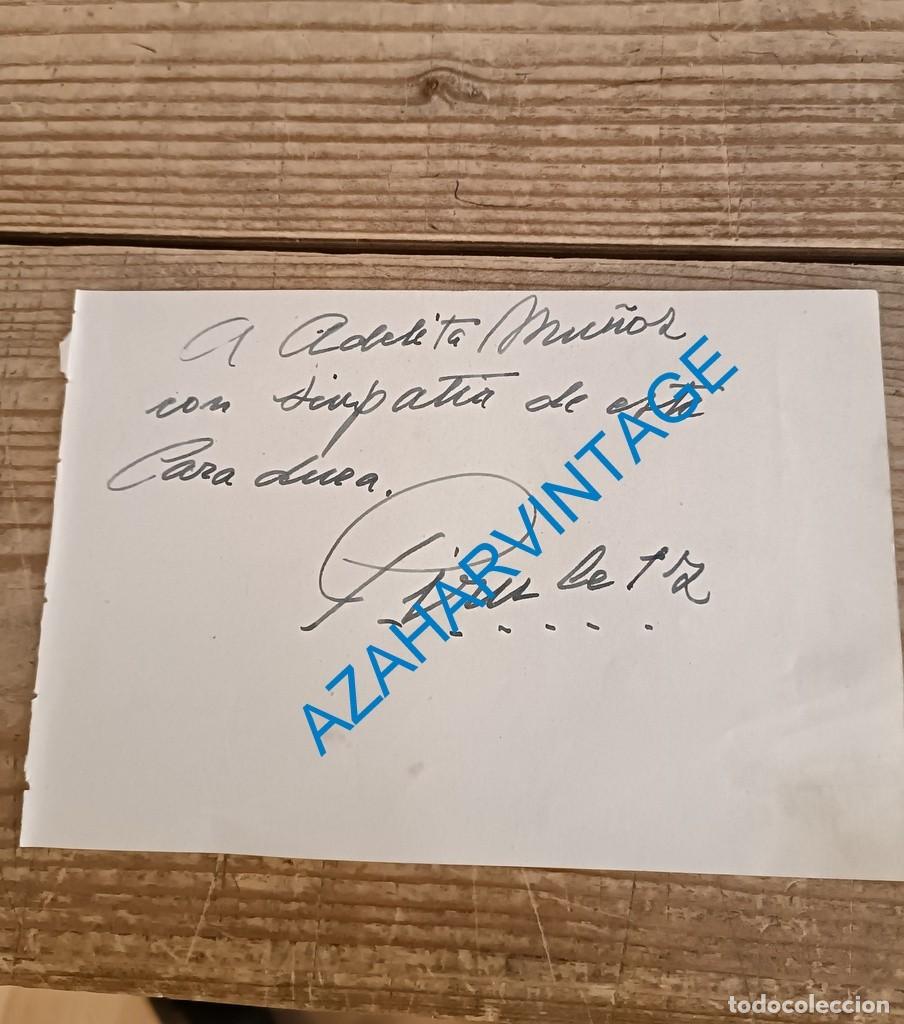 A Adelita Muñoz
con simpatia de esta
Cara dura.
AZAHARVINTAGE
todocoleccion